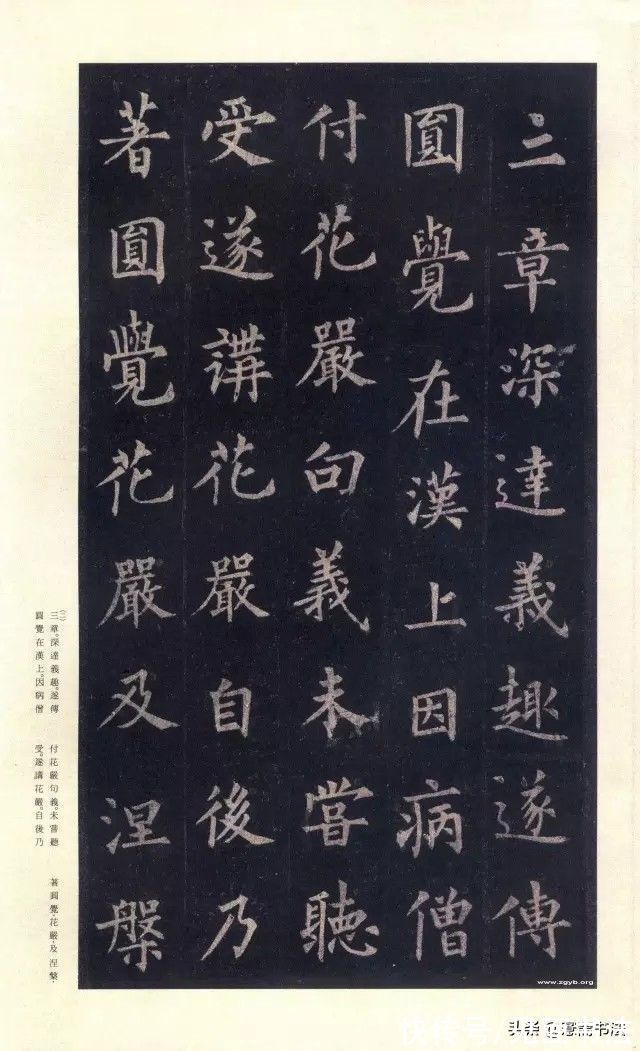 三章深達義趣遂傳
圓覺在漢上因病僧
付花嚴句義未嘗聽
受遂講花嚴自後乃
著圓覺花嚴及涅槃
(二)
三章。深達義趣。遂傳
圓覺在漢上。因病僧
付花嚴句義。未嘗聽
受。遂講花嚴。自後乃
著圓覺、花嚴、及涅槃、
www.zgyb.org
快传号/
头条
书法